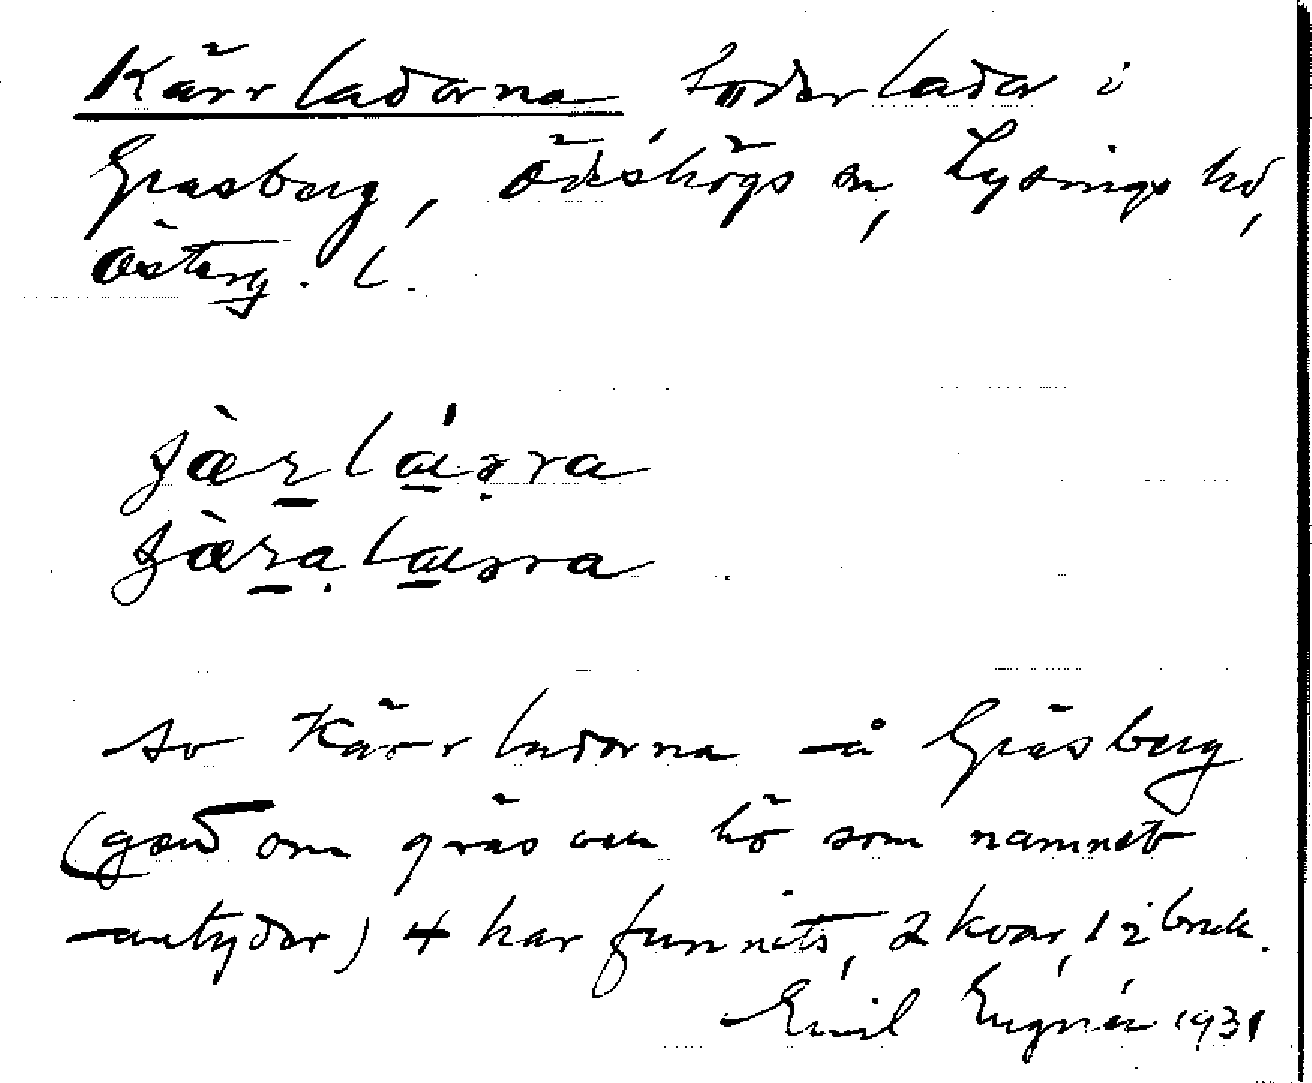 Kärrladorna foderlador i
Gräsberg, Ödeshögs sn, Lysings hd,
Österg. l.
jæ̀rlárra
jæ̀ralarra
Av Kärrladorna å Gräsberg
(god om gräs och hö som namnet
antyder) 4 har funnits, 2 kvar, 1 i bruk.
Emil 1931